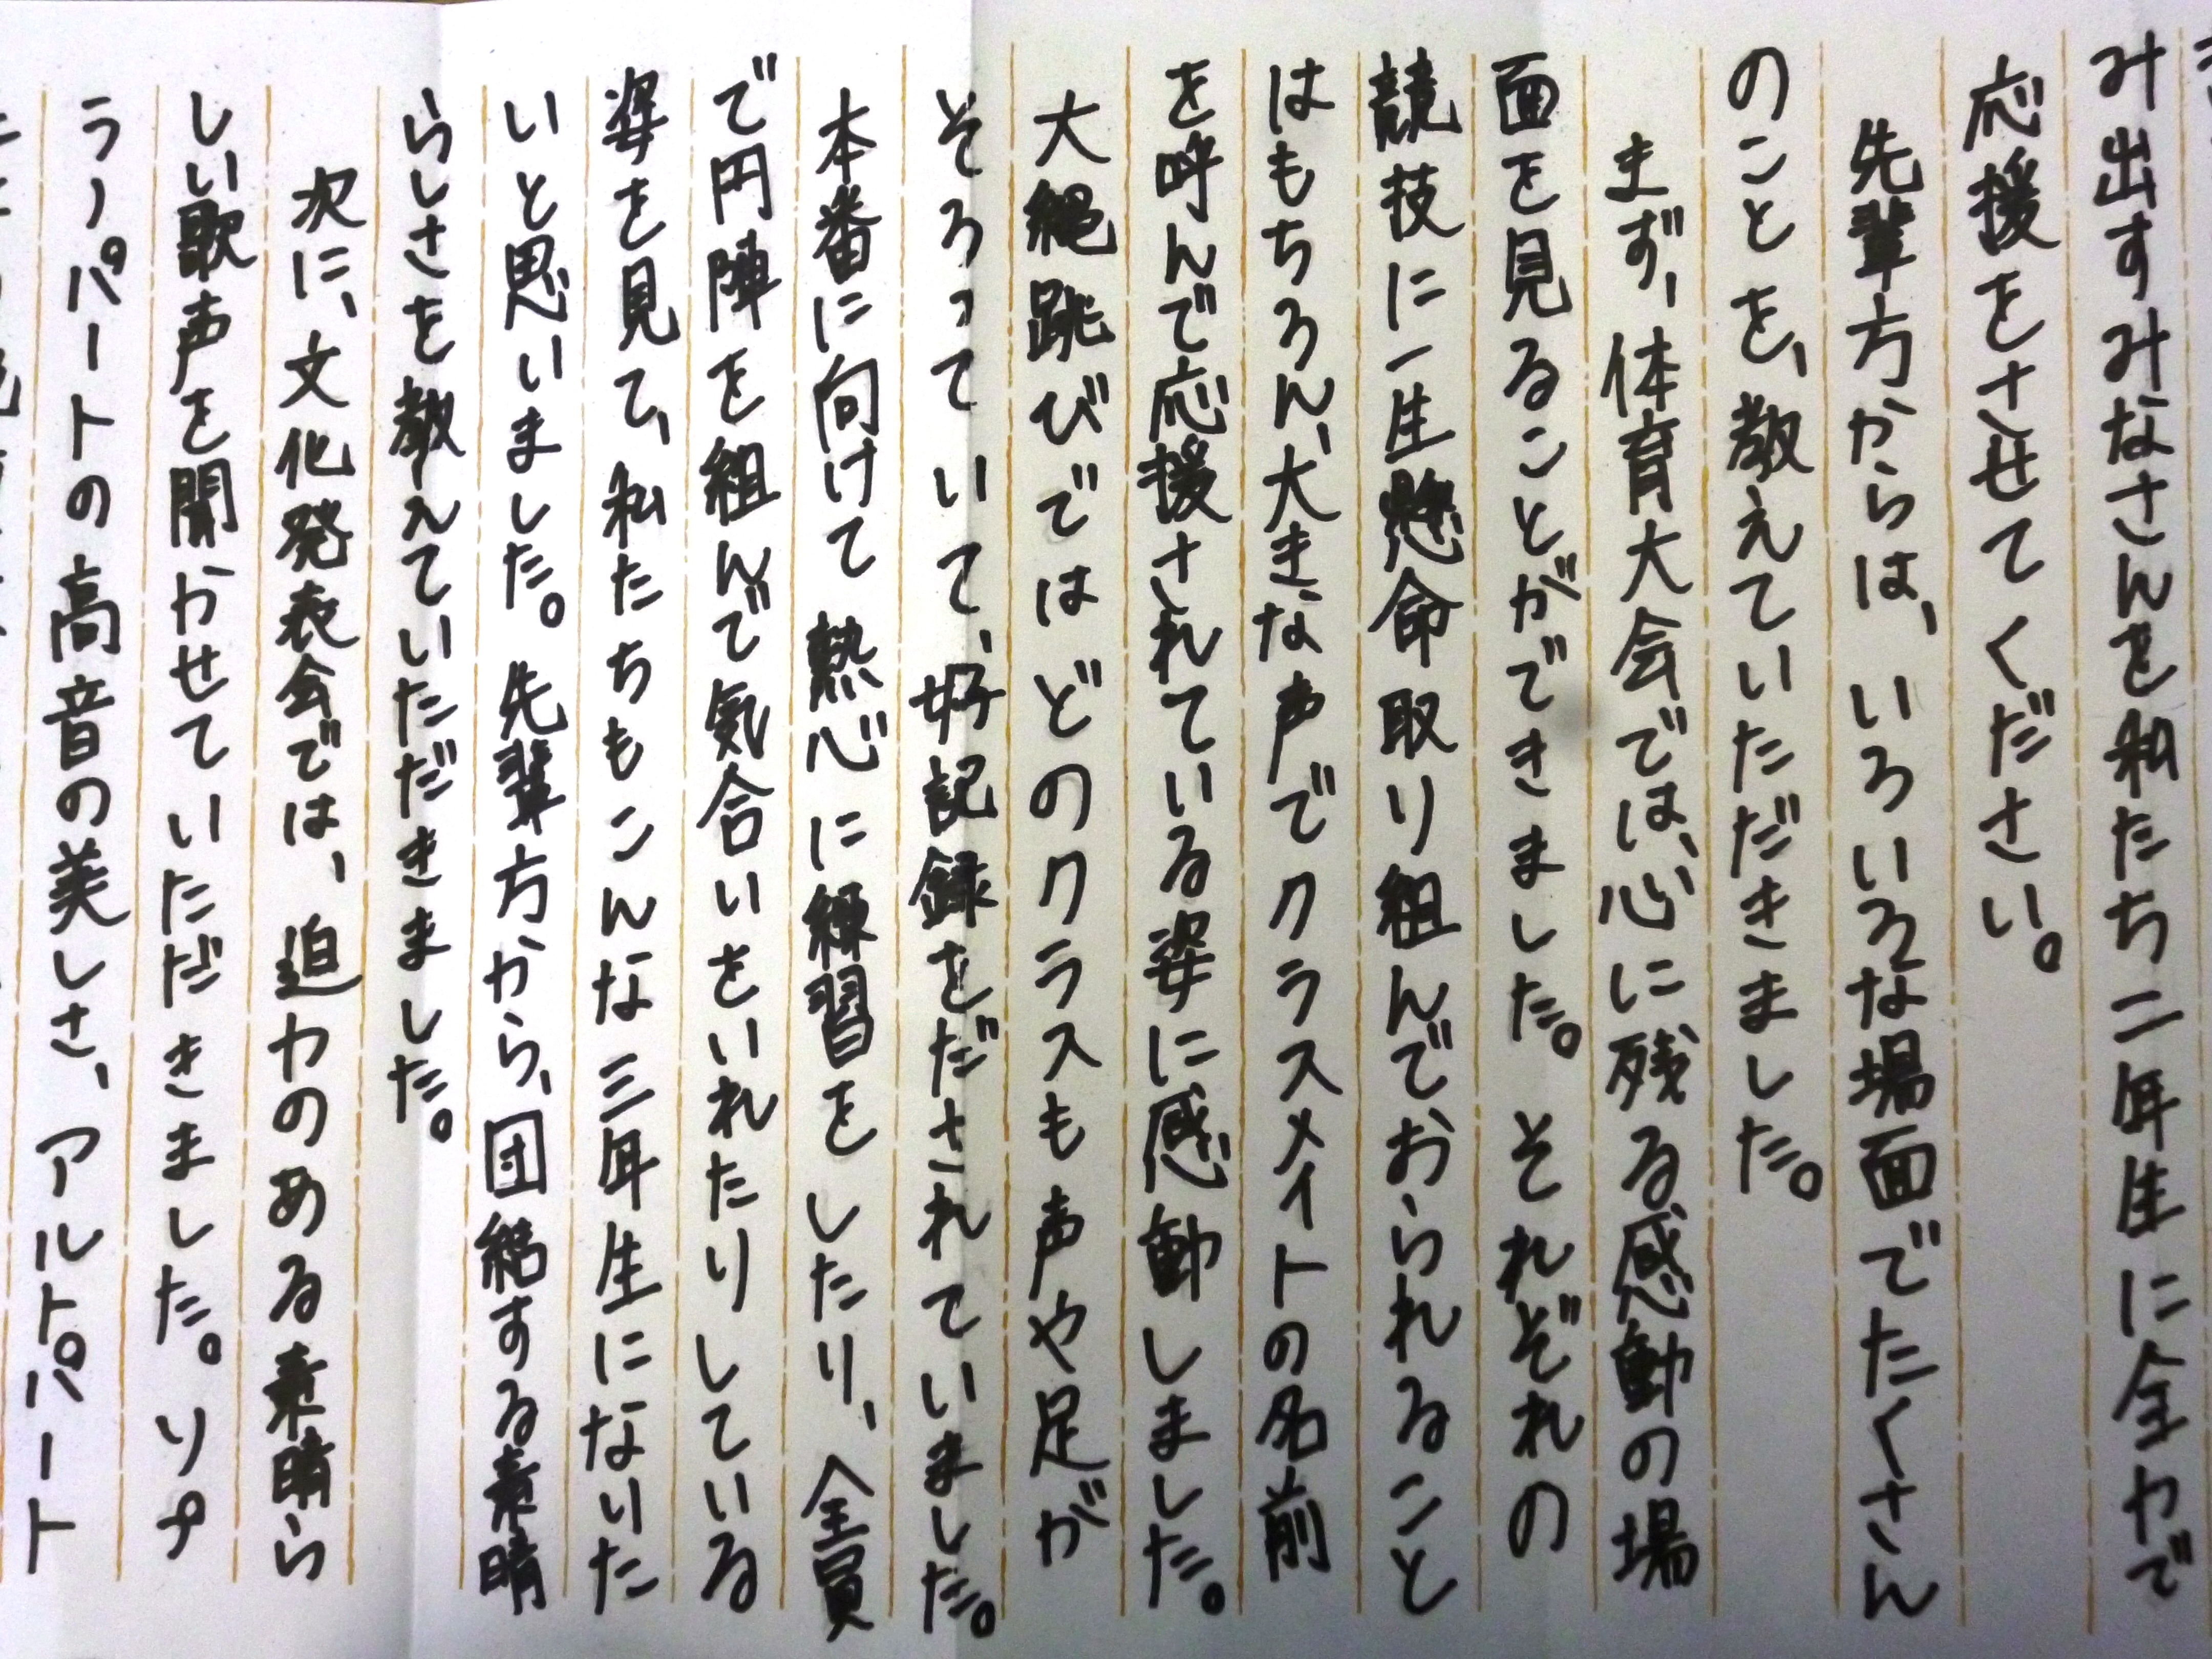 み出すみなさんを私たち二年生に全力で
応援をさせてください。
先輩方からは、いろいろな場面でたくさん
のことを、教えていただきました。
まず、体育大会では、心に残る感動の場
面を見ることができました。それぞれの
競技に一生懸命取り組んでおられること
はもちろん、大きな声でクラスメイトの名前
を呼んで応援されている姿に感動しました。
大縄跳びではどのクラスも声や足が
そろっていて、好記録をだされていました。
本番に向けて熱心に練習をしたり、全員
で円陣を組んで気合いをいれたりしている
姿を見て、私たちもこんな三年生になりた
いと思いました。先輩方から、団結する素晴
らしさを教えていただきました。
次に、文化発表会では、迫力のある素晴ら
しい歌声を聞かせていただきました。ソプ
ラノパートの高音の美しさ、アルトパート